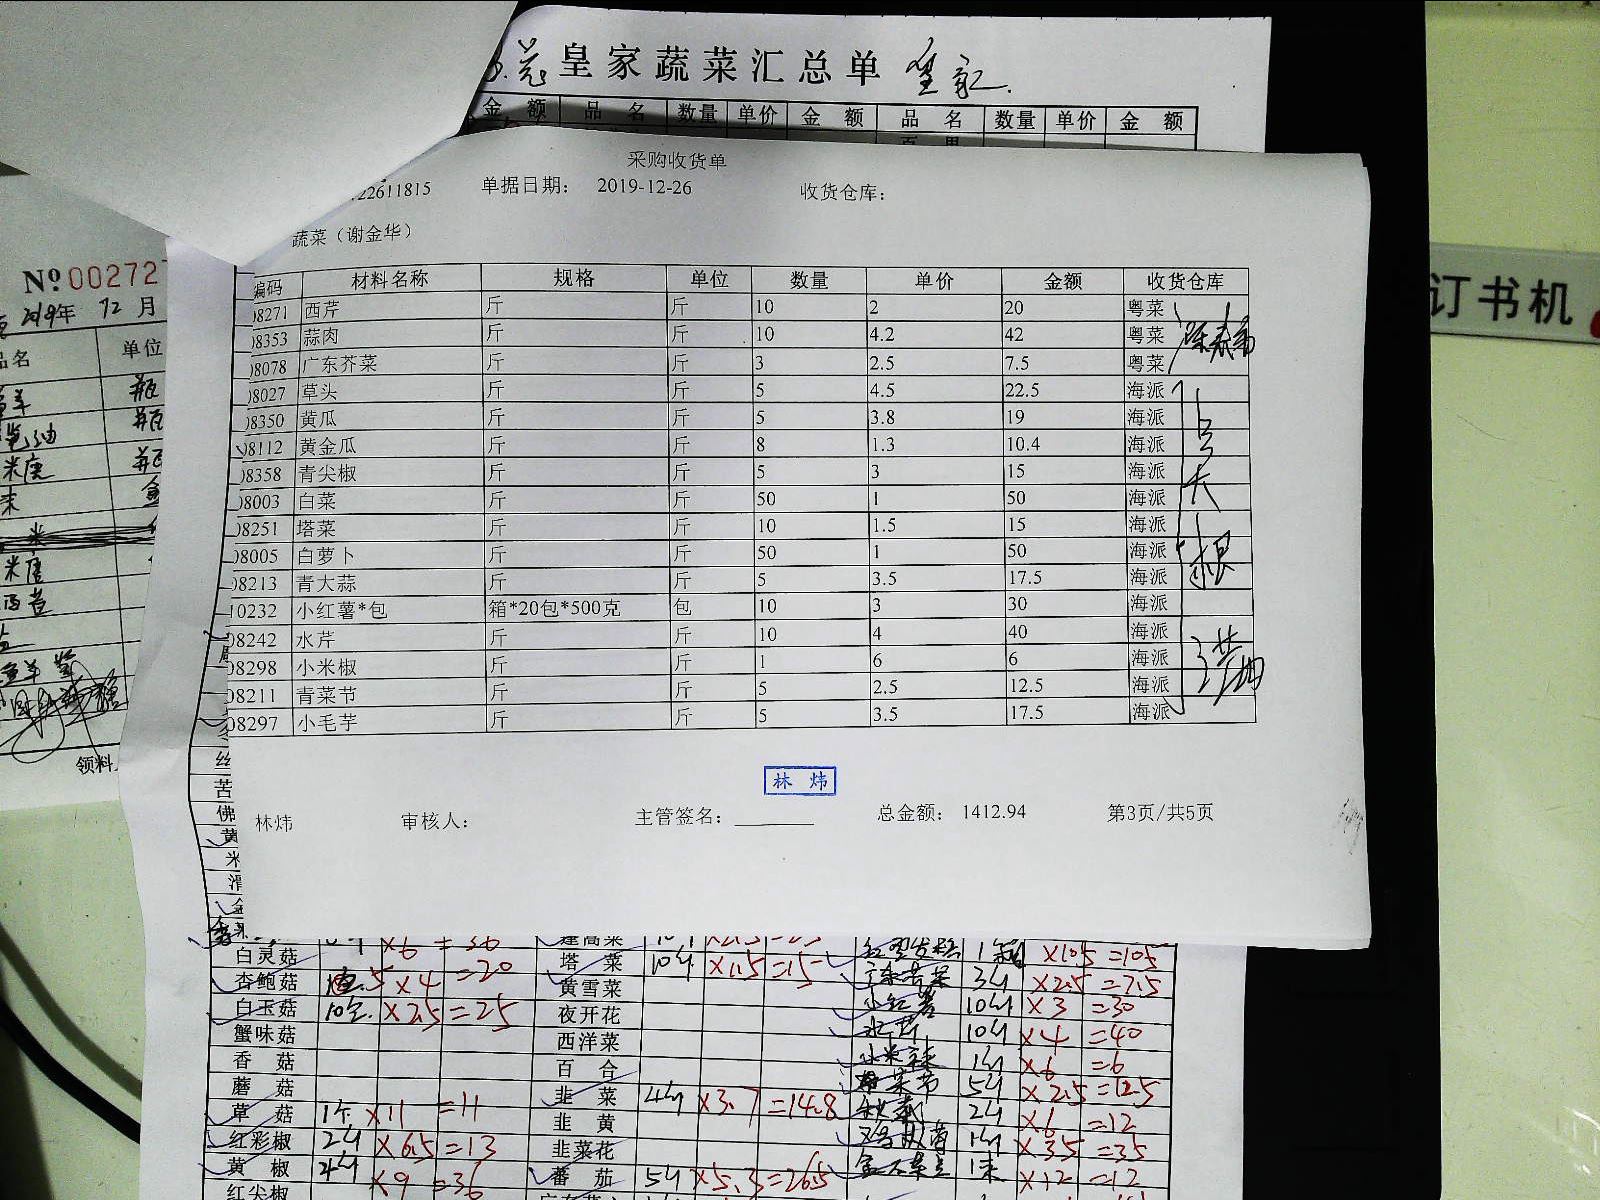 皇家蔬菜汇总单
金 额 品 名 数量 单价 金 额 品 名 数量 单价 金 额
采购收货单
22611815 单据日期： 2019-12-26 收货仓库：
蔬菜（谢金华）
编码 材料名称 规格 单位 数量 单价 金额 收货仓库
08271 西芹 斤 斤 10 2 20 粤菜
08353 蒜肉 斤 斤 10 4.2 42 粤菜
08078 广东芥菜 斤 斤 3 2.5 7.5 粤菜
08027 草头 斤 斤 5 4.5 22.5 海派
08350 黄瓜 斤 斤 5 3.8 19 海派
08112 黄金瓜 斤 斤 8 1.3 10.4 海派
08358 青尖椒 斤 斤 5 3 15 海派
08003 白菜 斤 斤 50 1 50 海派
08251 塔菜 斤 斤 10 1.5 15 海派
08005 白萝卜 斤 斤 50 1 50 海派
08213 青大蒜 斤 斤 5 3.5 17.5 海派
10232 小红薯*包 箱*20包*500克 包 10 3 30 海派
08242 水芹 斤 斤 10 4 40 海派
08298 小米椒 斤 斤 1 6 6 海派
08211 青菜节 斤 斤 5 2.5 12.5 海派
08297 小毛芋 斤 斤 5 3.5 17.5 海派
林 炜
林炜 审核人： 主管签名： 总金额： 1412.94 第3页/共5页
№00272
2019年 12月
品名 单位
领料
订书机
丝
苦
佛
黄
米
白灵菇 ×6 =36 蓬蒿菜
×10.5 =105
杏鲍菇 5 ×4 =20 塔 菜 10斤 ×1.5 =15
3斤 ×2.5 =7.5
白玉菇 10包 ×2.5 =25 黄雪菜 小红薯 10斤 ×3 =30
蟹味菇 夜开花 水芹 10斤 ×4 =40
香 菇 西洋菜 小米辣 1斤 ×6 =6
蘑 菇 百 合 青菜节 5斤 ×2.5 =12.5
草 菇 1斤 ×11 =11 韭 菜 4斤 ×3.7 =14.8
2斤 ×6 =12
红彩椒 2斤 ×6.5 =13 韭 黄
1斤 ×35 =35
黄 椒 4斤 ×9 =36 韭菜花
×12 =12
红尖椒 蕃 茄 5斤 ×5.3 =26.5